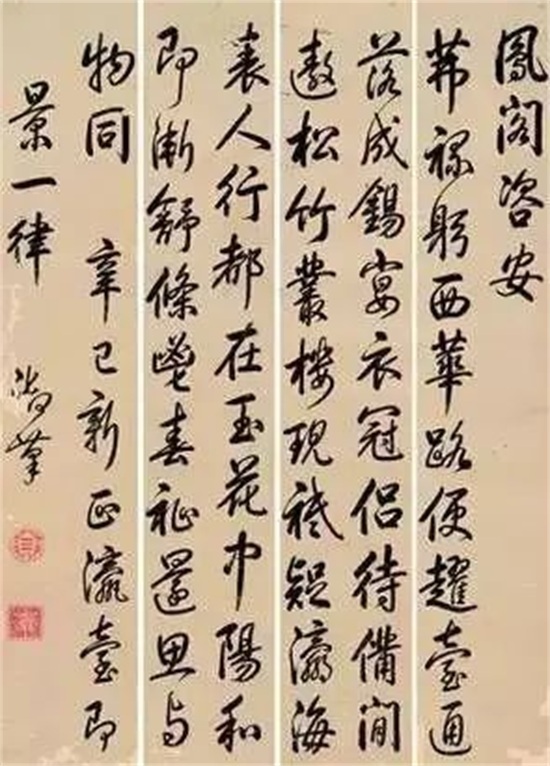 鳳閣咨安
茀祿躬西華路便趯臺通
落成錫宴衣冠侶待備閒
遨松竹叢樓現祗疑瀛海
裏人行都在玉花中陽和
即漸舒條鬯春祉還思與
物同 辛巳新正瀛臺即
景一律 御筆